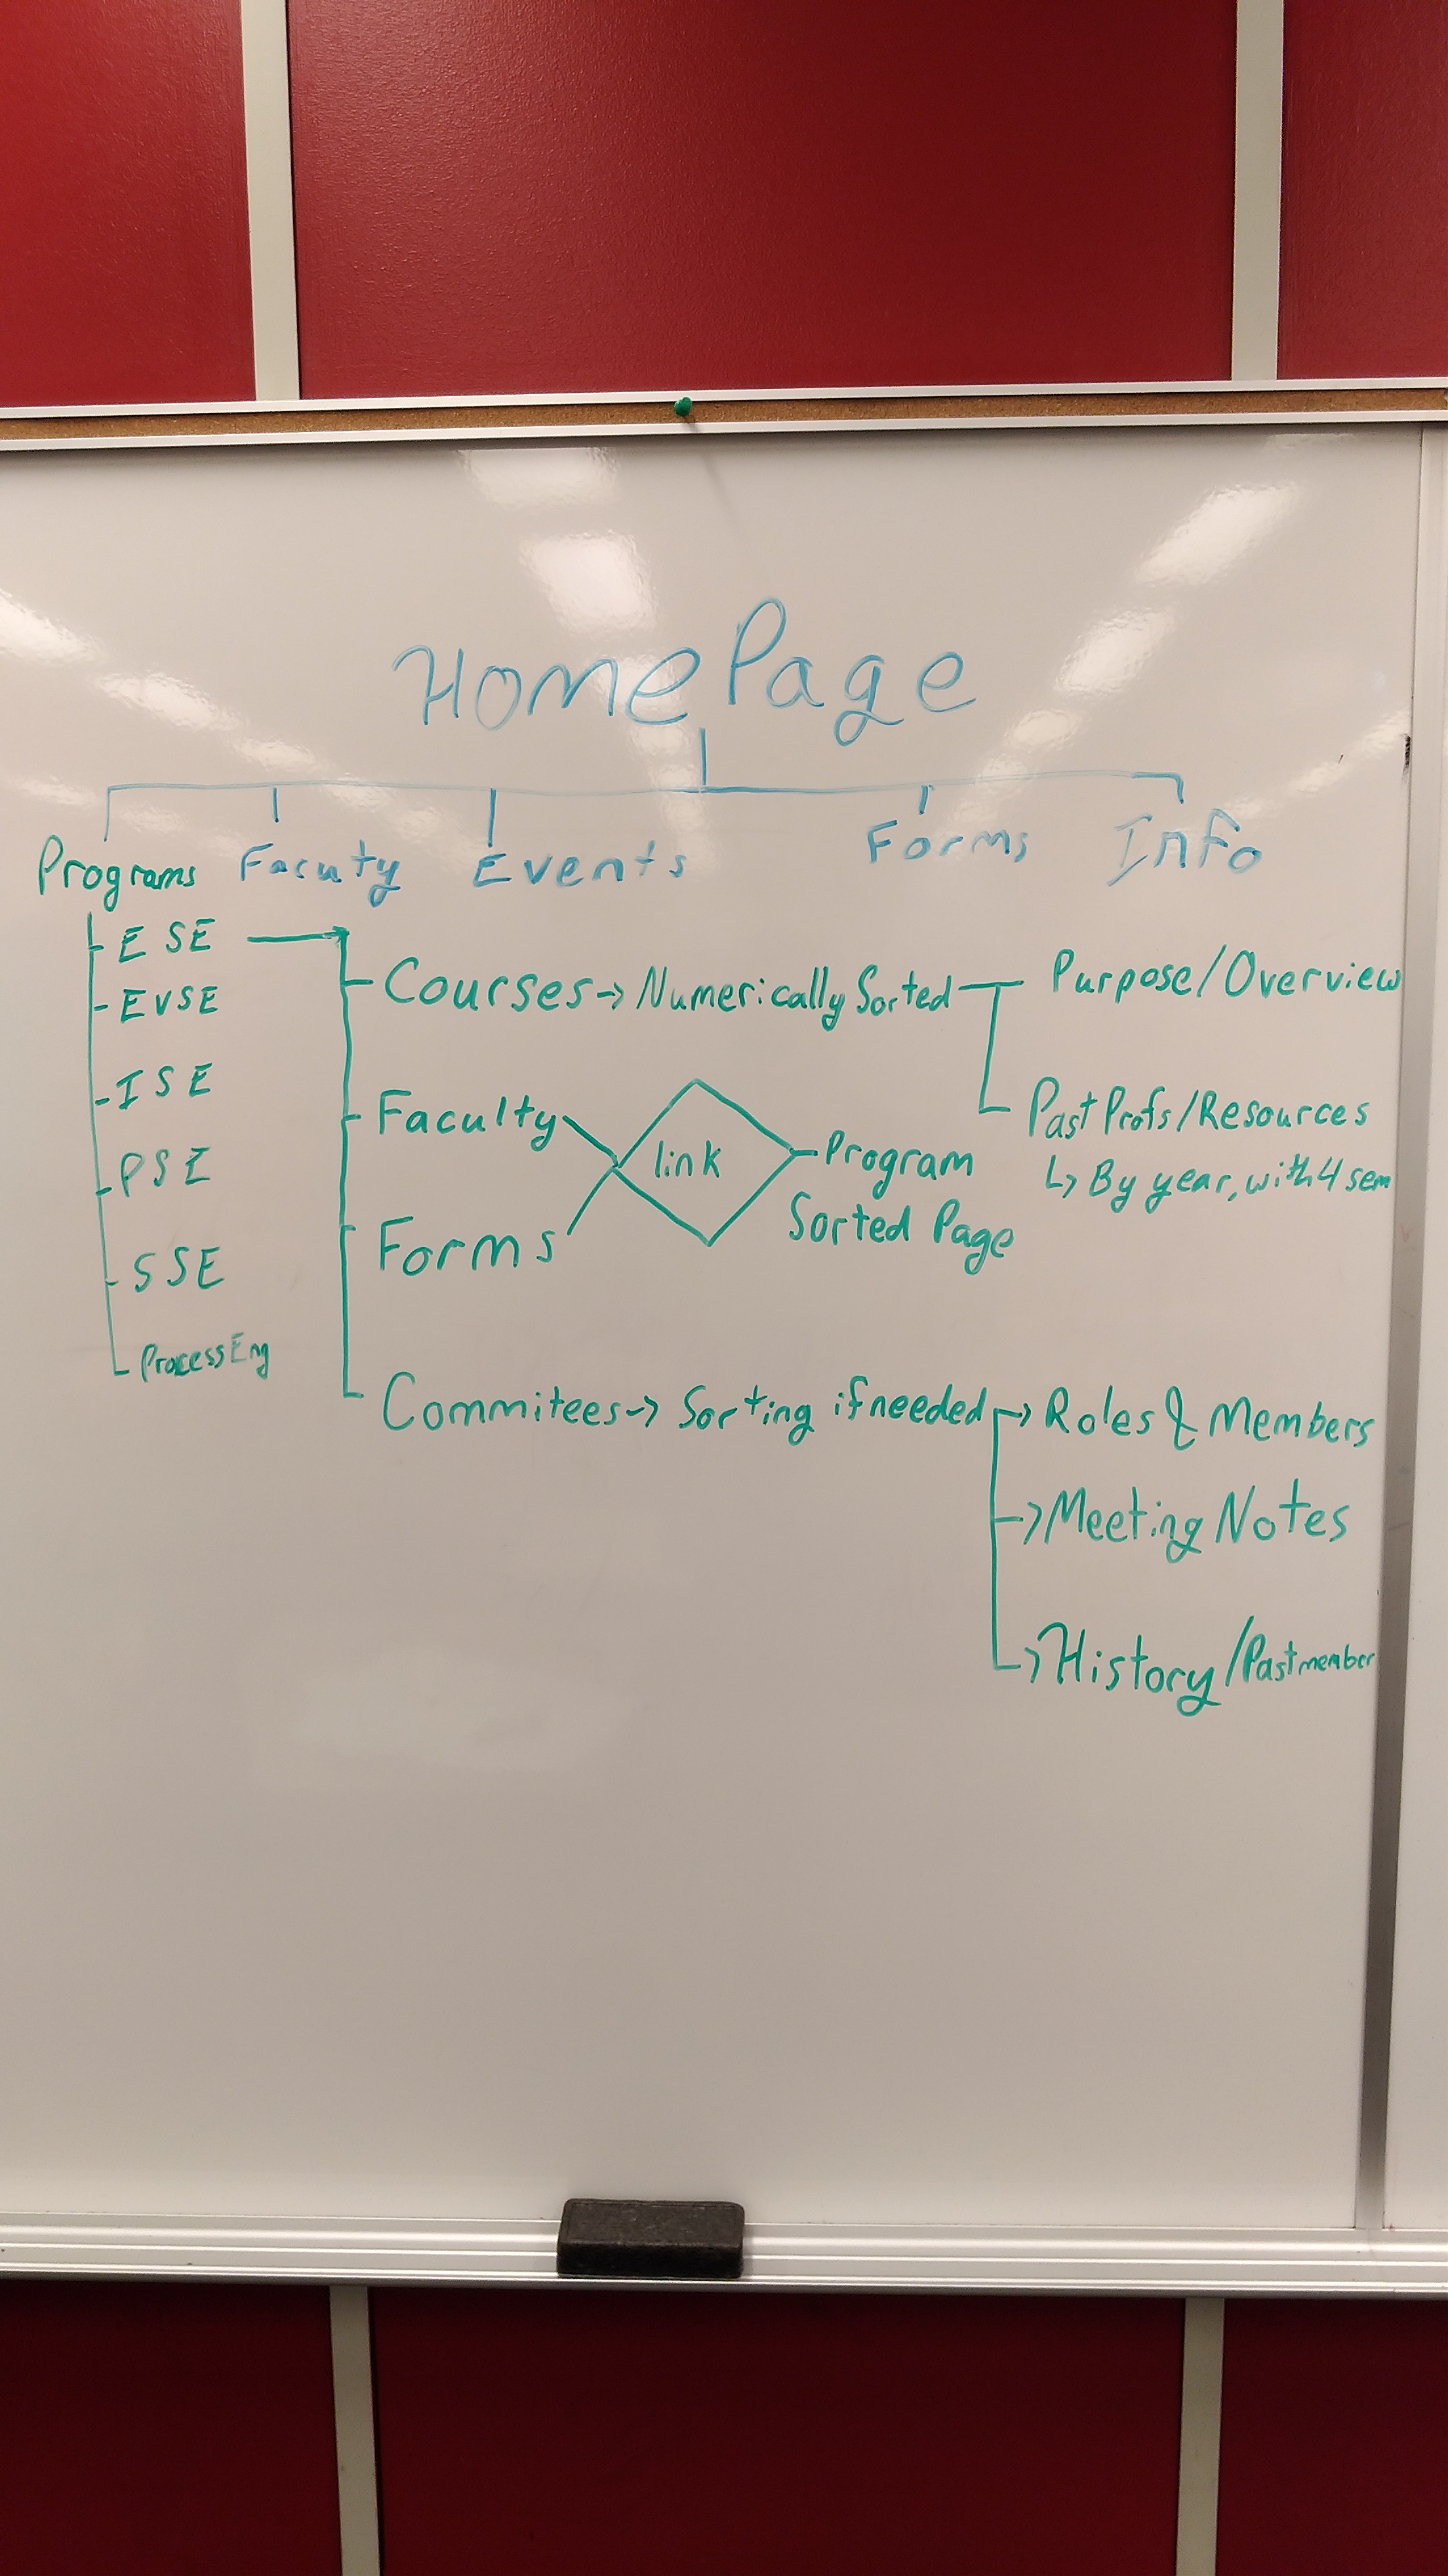 HomePage
Programs Facuty Events Forms Info
ESE
EVSE
ISE
PSE
SSE
ProcessEng
Courses -> Numerically Sorted
Purpose/Overview
Past Profs/Resources
↳ By year, with 4 sem
Faculty
Forms
link
Program
Sorted Page
Commitees -> Sorting if needed
-> Roles & Members
-> Meeting Notes
-> History/Past member